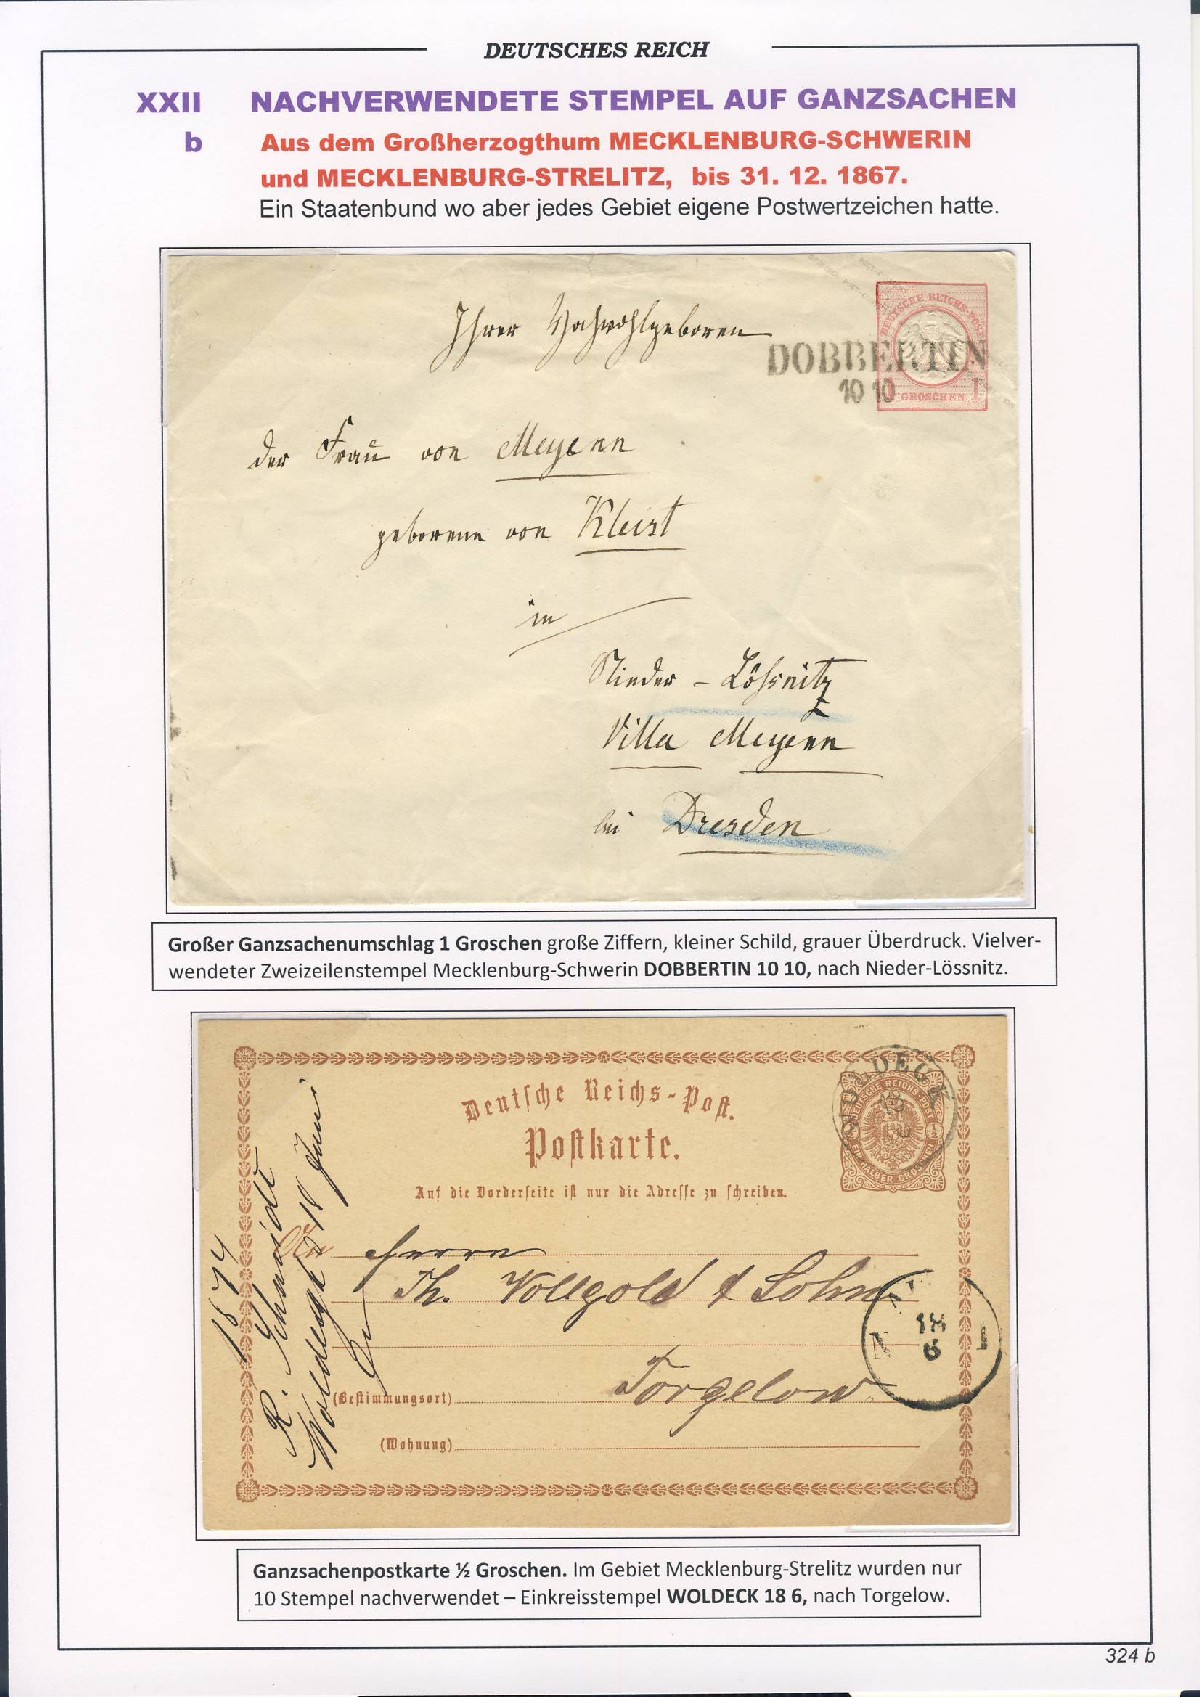 DEUTSCHES REICH
XXII NACHVERWENDETE STEMPEL AUF GANZSACHEN
b Aus dem Großherzogthum MECKLENBURG-SCHWERIN
und MECKLENBURG-STRELITZ, bis 31. 12. 1867.
Ein Staatenbund wo aber jedes Gebiet eigene Postwertzeichen hatte.
DEUTSCHE REICHS-POST
1 GROSCHEN 1
DOBBERTIN
10 10
Ihrer Hochwohlgeboren
der Frau von Meyenn
geborene von Kleist
in
Nieder-Lössnitz
Villa Meyenn
bei Dresden
Großer Ganzsachenumschlag 1 Groschen große Ziffern, kleiner Schild, grauer Überdruck. Vielver-
wendeter Zweizeilenstempel Mecklenburg-Schwerin DOBBERTIN 10 10, nach Nieder-Lössnitz.
Deutsche Reichs-Post.
Postkarte.
Auf die Vorderseite ist nur die Adresse zu schreiben.
WOLDECK
18
DEUTSCHE REICHS-POST
EIN HALBER GROSCHEN
An Herrn
Th. Vollgold & Sohn
Torgelow
(Bestimmungsort)
(Wohnung)
18
6
N 1
R. Schmidt
Woldegk 18 Juni
1874
Ganzsachenpostkarte ½ Groschen. Im Gebiet Mecklenburg-Strelitz wurden nur
10 Stempel nachverwendet – Einkreisstempel WOLDECK 18 6, nach Torgelow.
324 b